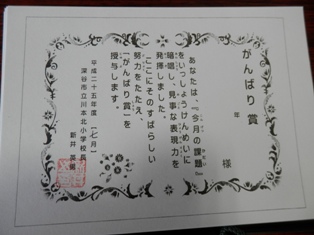 がんばり賞
年
様
あなたは、『今月の課題』
をいっしょうけんめいに
暗唱し、見事な表現力を
発揮しました。
ここにそのすばらしい
努力をたたえ、
「がんばり賞」を
授与します。
平成二十五年度 【七月】
深谷市立川本北小学校長
新井